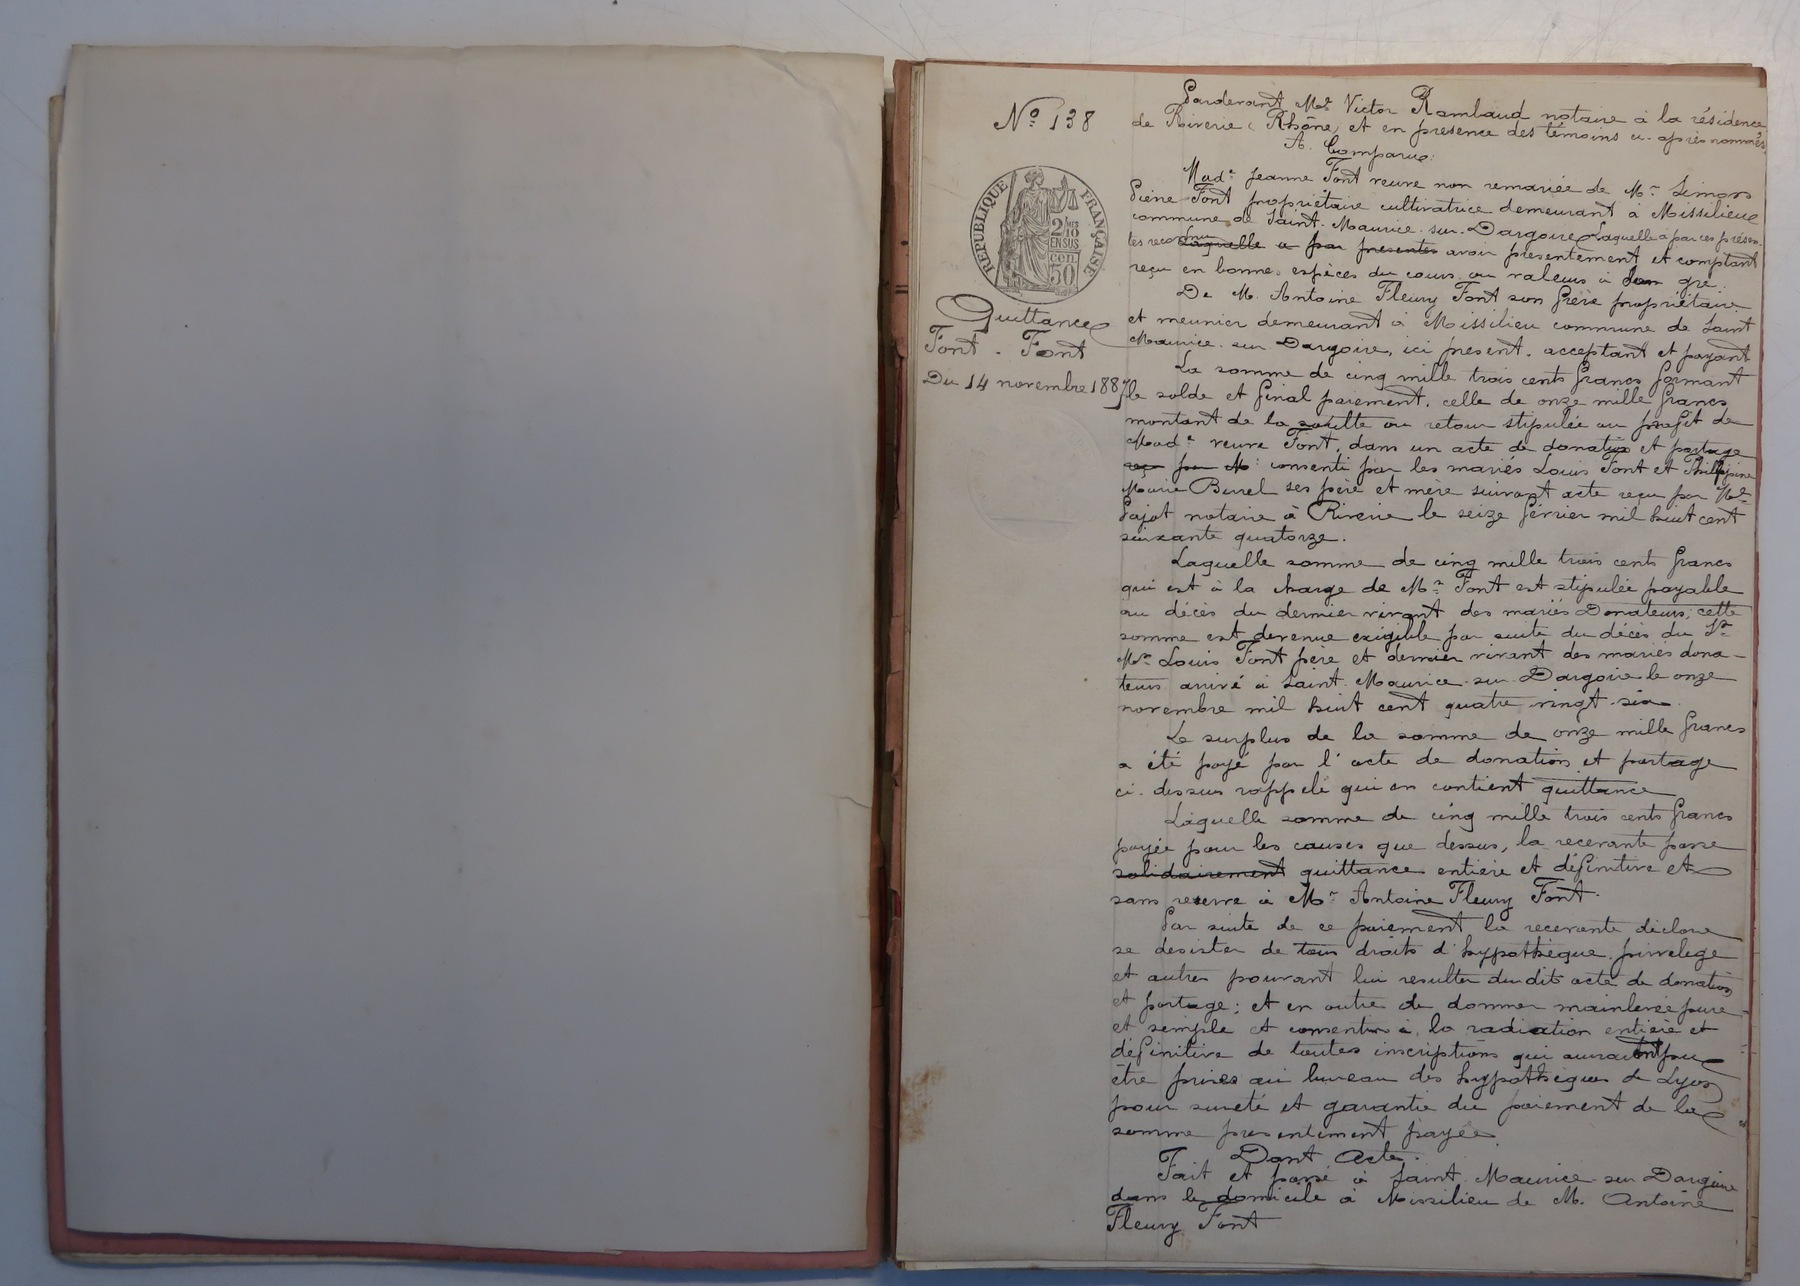 N° 138
RÉPUBLIQUE FRANÇAISE
2/10 EN SUS
50 cen.
Quittance
Font - Font
Du 14 novembre 1887
Pardevant Me Victor Rambaud notaire à la résidence
de Riverie (Rhône) et en presence des témoins ci-après nommés,
A Comparu:
Made Jeanne Font veuve non remariée de Mr Simon
Pierre Font propriétaire cultivatrice demeurant à Missilieu
commune de Saint-Maurice-sur-Dargoire Laquelle à par ces présen-
tes reconnu Laquelle a par presentes avoir présentement et comptant
reçu en bonnes espèces du cours ou valeurs à son gré.
De M. Antoine Fleury Font son frère propriétaire
et meunier demeurant à Missilieu commune de Saint
Maurice-sur-Dargoire, ici present, acceptant et payant
La somme de cinq mille trois cents francs formant
le solde et final paiement, celle de onze mille francs
montant de la soulte ou retour stipulée au profit de
Made veuve Font, dans un acte de donation et partage
reçu par Me consenti par les mariés Louis Font et Philippine
Marie Burel ses père et mère suivant acte reçu par Me
Pajot notaire à Riverie le seize février mil huit cent
soixante quatorze.
Laquelle somme de cinq mille trois cents francs
qui est à la charge de Mr Font est stipulée payable
au décès du dernier vivant des mariés Donateurs; cette
somme est devenue exigible par suite du décès du Sr
Mr Louis Font père et dernier vivant des mariés dona-
teurs arrivé à Saint-Maurice-sur-Dargoire le onze
novembre mil huit cent quatre vingt-six.
Le surplus de la somme de onze mille francs
a été payé par l'acte de donation et partage
ci-dessus rappelé qui en contient quittance
Laquelle somme de cinq mille trois cents francs
payée pour les causes que dessus, la recevante passe
solidairement quittance entière et définitive et
sans reserve à Mr Antoine Fleury Font.
Par suite de ce paiement la recevante déclare
se desister de tous droits d'hypothèque, privelege
et autres pouvant lui resulter dudit acte de donation
et partage; et en outre de donner mainlevée pure
et simple et consentir à la radiation entière et
définitive de toutes inscriptions qui auraient pu
être prises au bureau des hypothèques de Lyon
pour sureté et garantie du paiement de la
somme presentement payée.
Dont Acte.
Fait et passé à Saint Maurice-sur Dargoire
dans le domicile à Missilieu de M. Antoine
Fleury Font